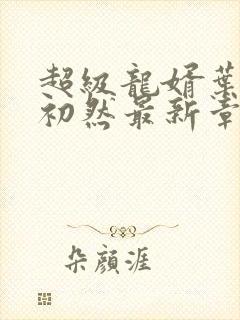 超級龍婿葉
初然最新章
朵顏涯